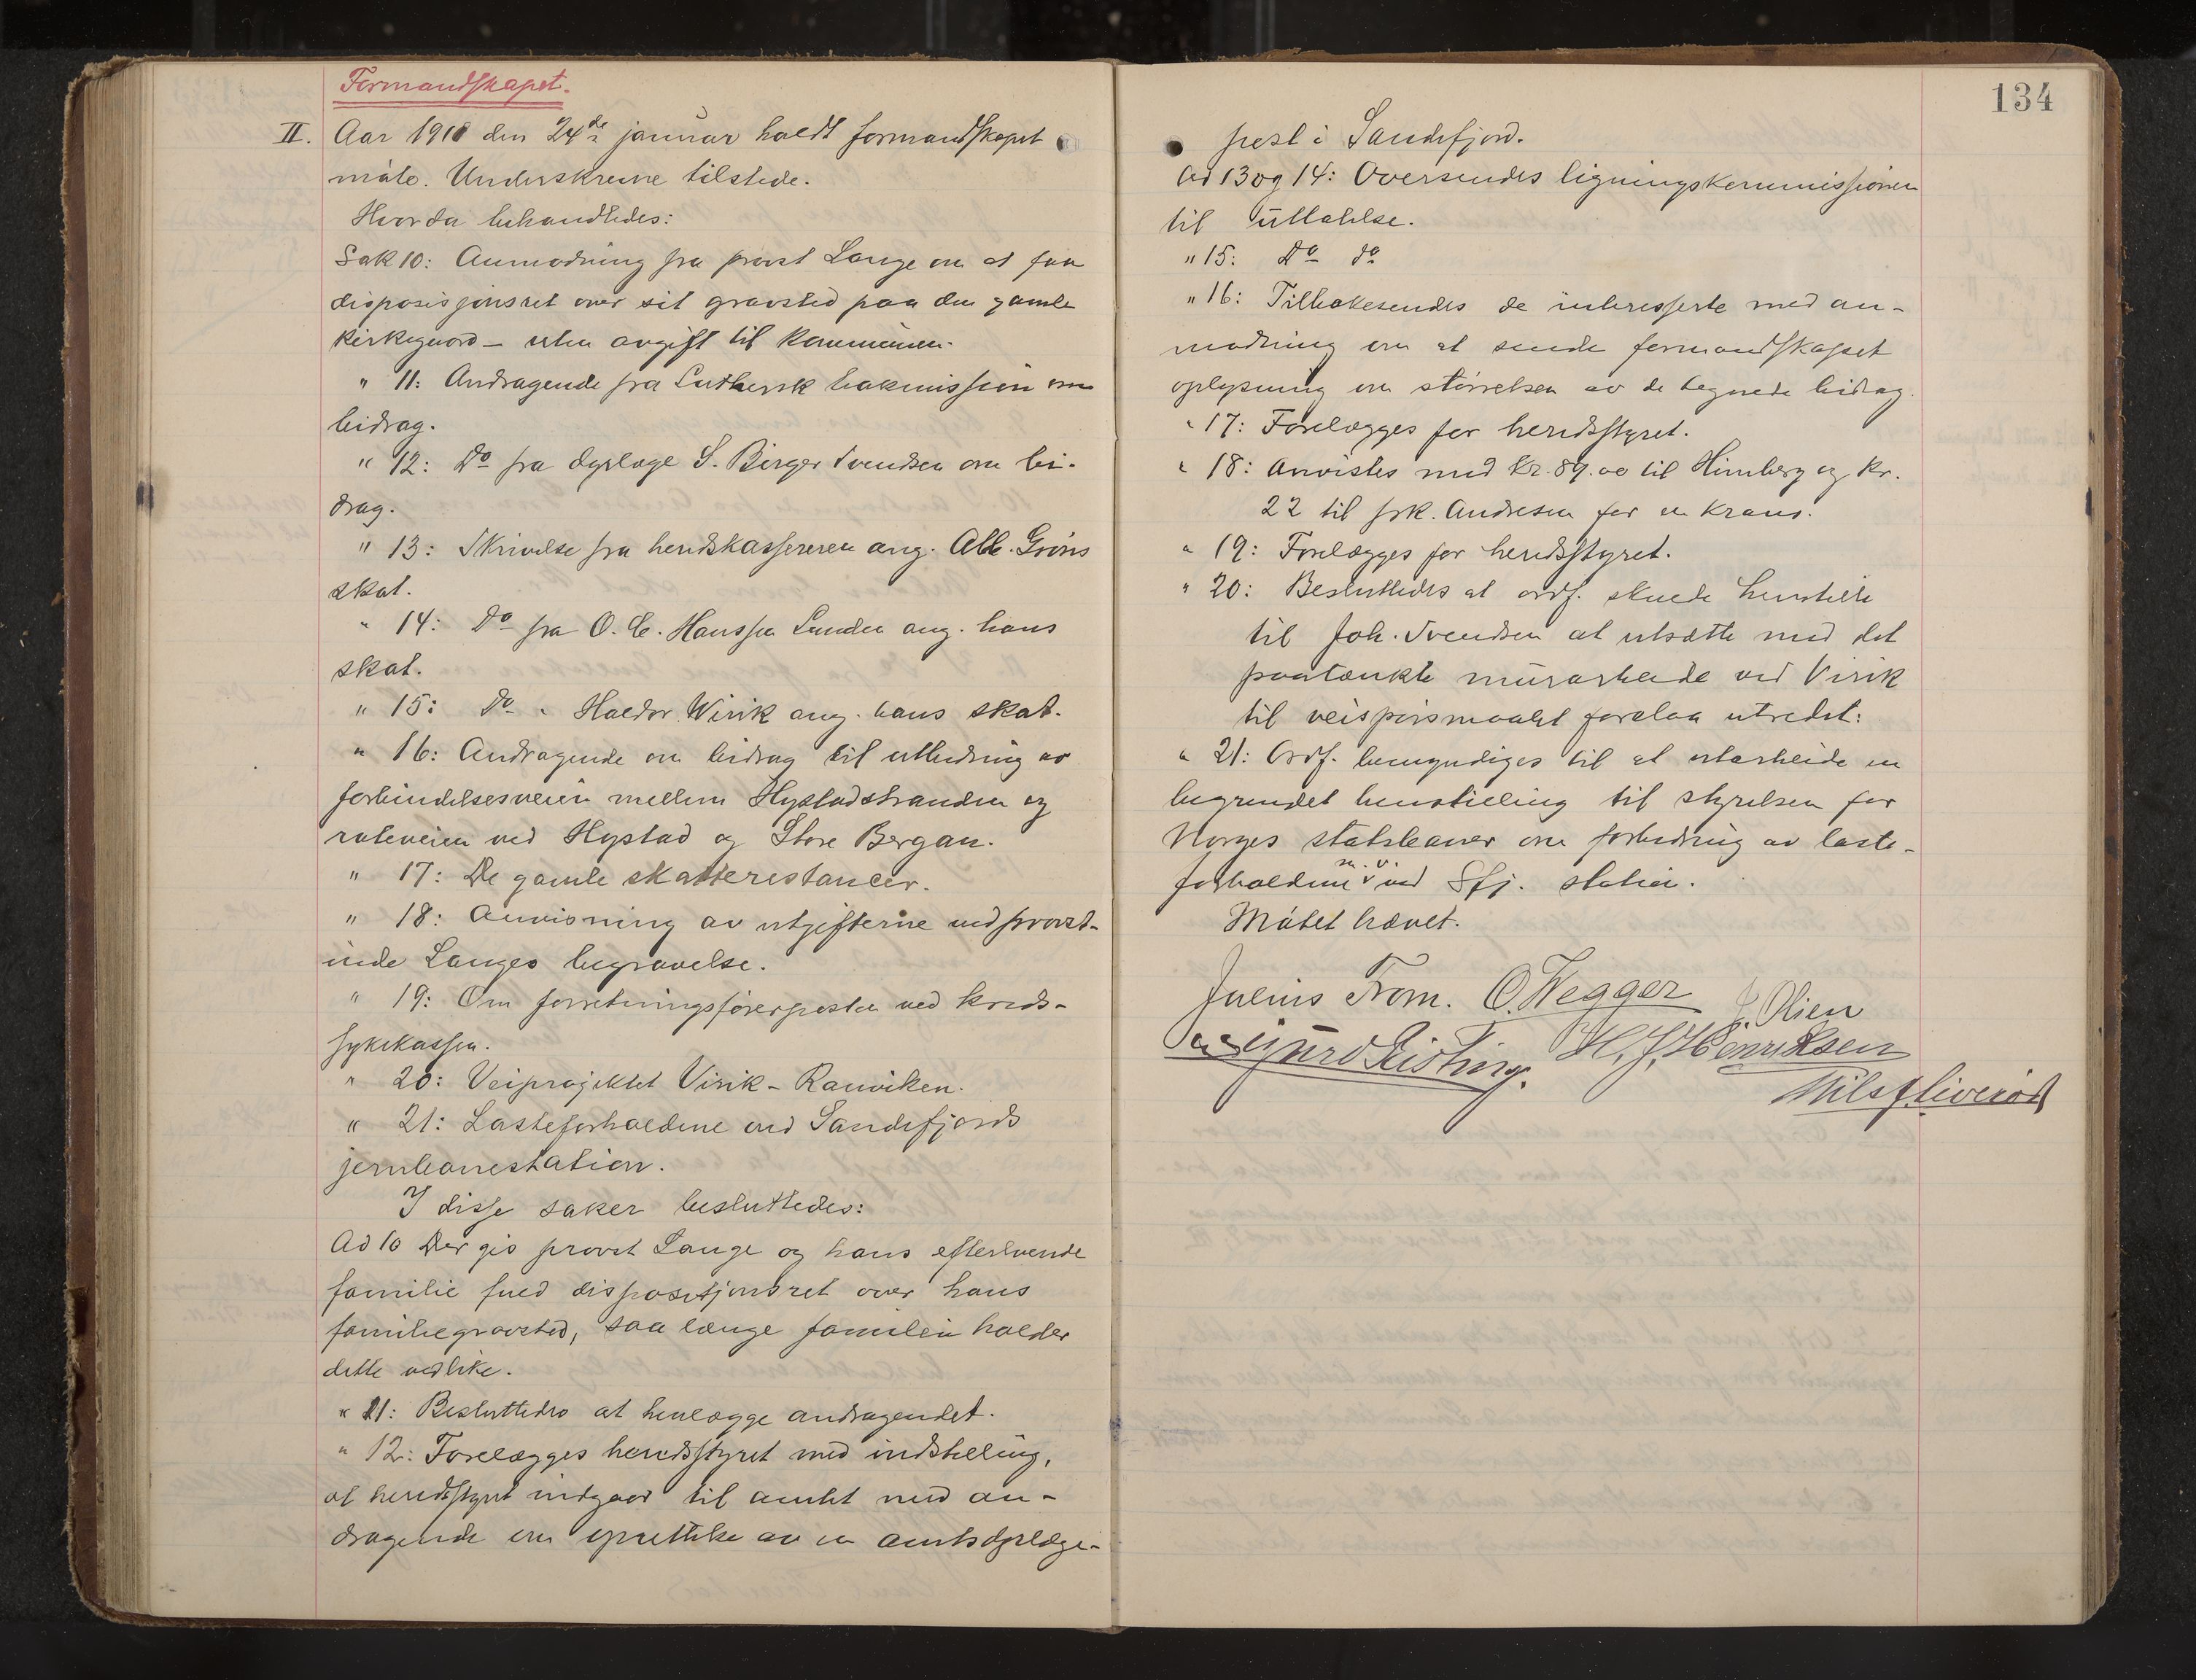 Formandskapet.
II. Aar 1918 den 24de januar holdt formandskapet
møte. Underskrevne tilstede.
Hvorda behandledes:
Sak 10: Anmodning fra provst Lange om at faa
disposisjonsret over sit gravsted paa den gamle
kirkegaard – uten avgift til kommunen.
" 11: Andragende fra Luthersk Bokmission om
bidrag.
" 12: Do fra dyrlæge S. Birger Svendsen om bi-
drag.
" 13: Skrivelse fra herredskassereren ang. Alb. Grøns
skat.
" 14: Do fra O. C. Hanssen Lunden ang. hans
skat.
" 15: Do " Haldor Wirik ang. hans skat.
" 16: Andragende om bidrag til utbedring av
forbindelsesveien mellem Hystadstranden og
rodeveien ved Hystad og Store Bergan.
" 17: De gamle skatterestancer.
" 18: Anvisning av utgifterne ved provst-
inde Langes begravelse.
" 19: Om forretningsførerposten ved kreds-
sykekassen.
" 20: Veiprojektet Virik – Ranviken.
" 21: Lasteforholdene ved Sandefjords
jernbanestation.
I disse saker besluttedes:
Ad 10 Der gis provst Lange og hans efterlevende
familie fuld disposisjonsret over hans
familiegravsted, saa længe familien holder
dette vedlike.
" 11: Besluttedes at henlægge andragendet.
" 12: Forelægges herredsstyret med indstilling,
at herredsstyret indgaar til amtet med an-
dragende om oprettelse av en amtsdyrlæge-
134
post i Sandefjord.
Ad 13 og 14: Oversendes ligningskommissionen
til uttalelse.
" 15: Do do
" 16: Tilbakesendes de interesserte med an-
modning om at sende formandskapet
oplysning om størrelsen av de tegnede bidrag.
" 17: Forelægges for herredsstyret.
" 18: Anvistes med kr. 89.00 til Himberg og kr.
22 til frk. Andresen for en krans.
" 19: Forelægges for herredsstyret.
" 20: Besluttedes at ordf. skulde henstille
til Joh. Svendsen at utsætte med det
paatænkte murarbeide ved Virik
til veispørsmaalet forelaa utredet.
" 21: Ordf. bemyndiges til at utarbeide en
begrundet henstilling til styrelsen for
Norges statsbaner om forbedring av laste-
forholdene m. v. ved Sfj. station.
Møtet hævet.
Julius From. O. Wegger J. Olsen
H. J. Henriksen
Nils Liverød